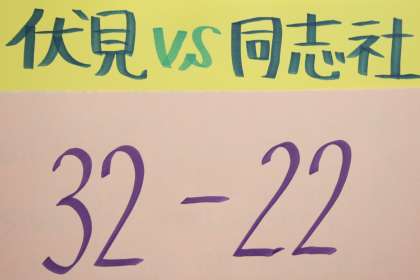 伏見 VS 同志社
32 - 22